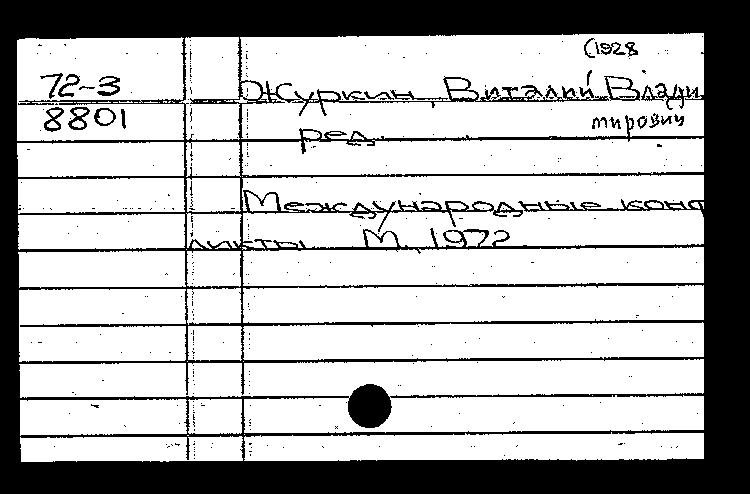 (1928
72-3 Журкин, Виталий Влади
8801 мирович
ред.
Международные конф
ликты М., 1972